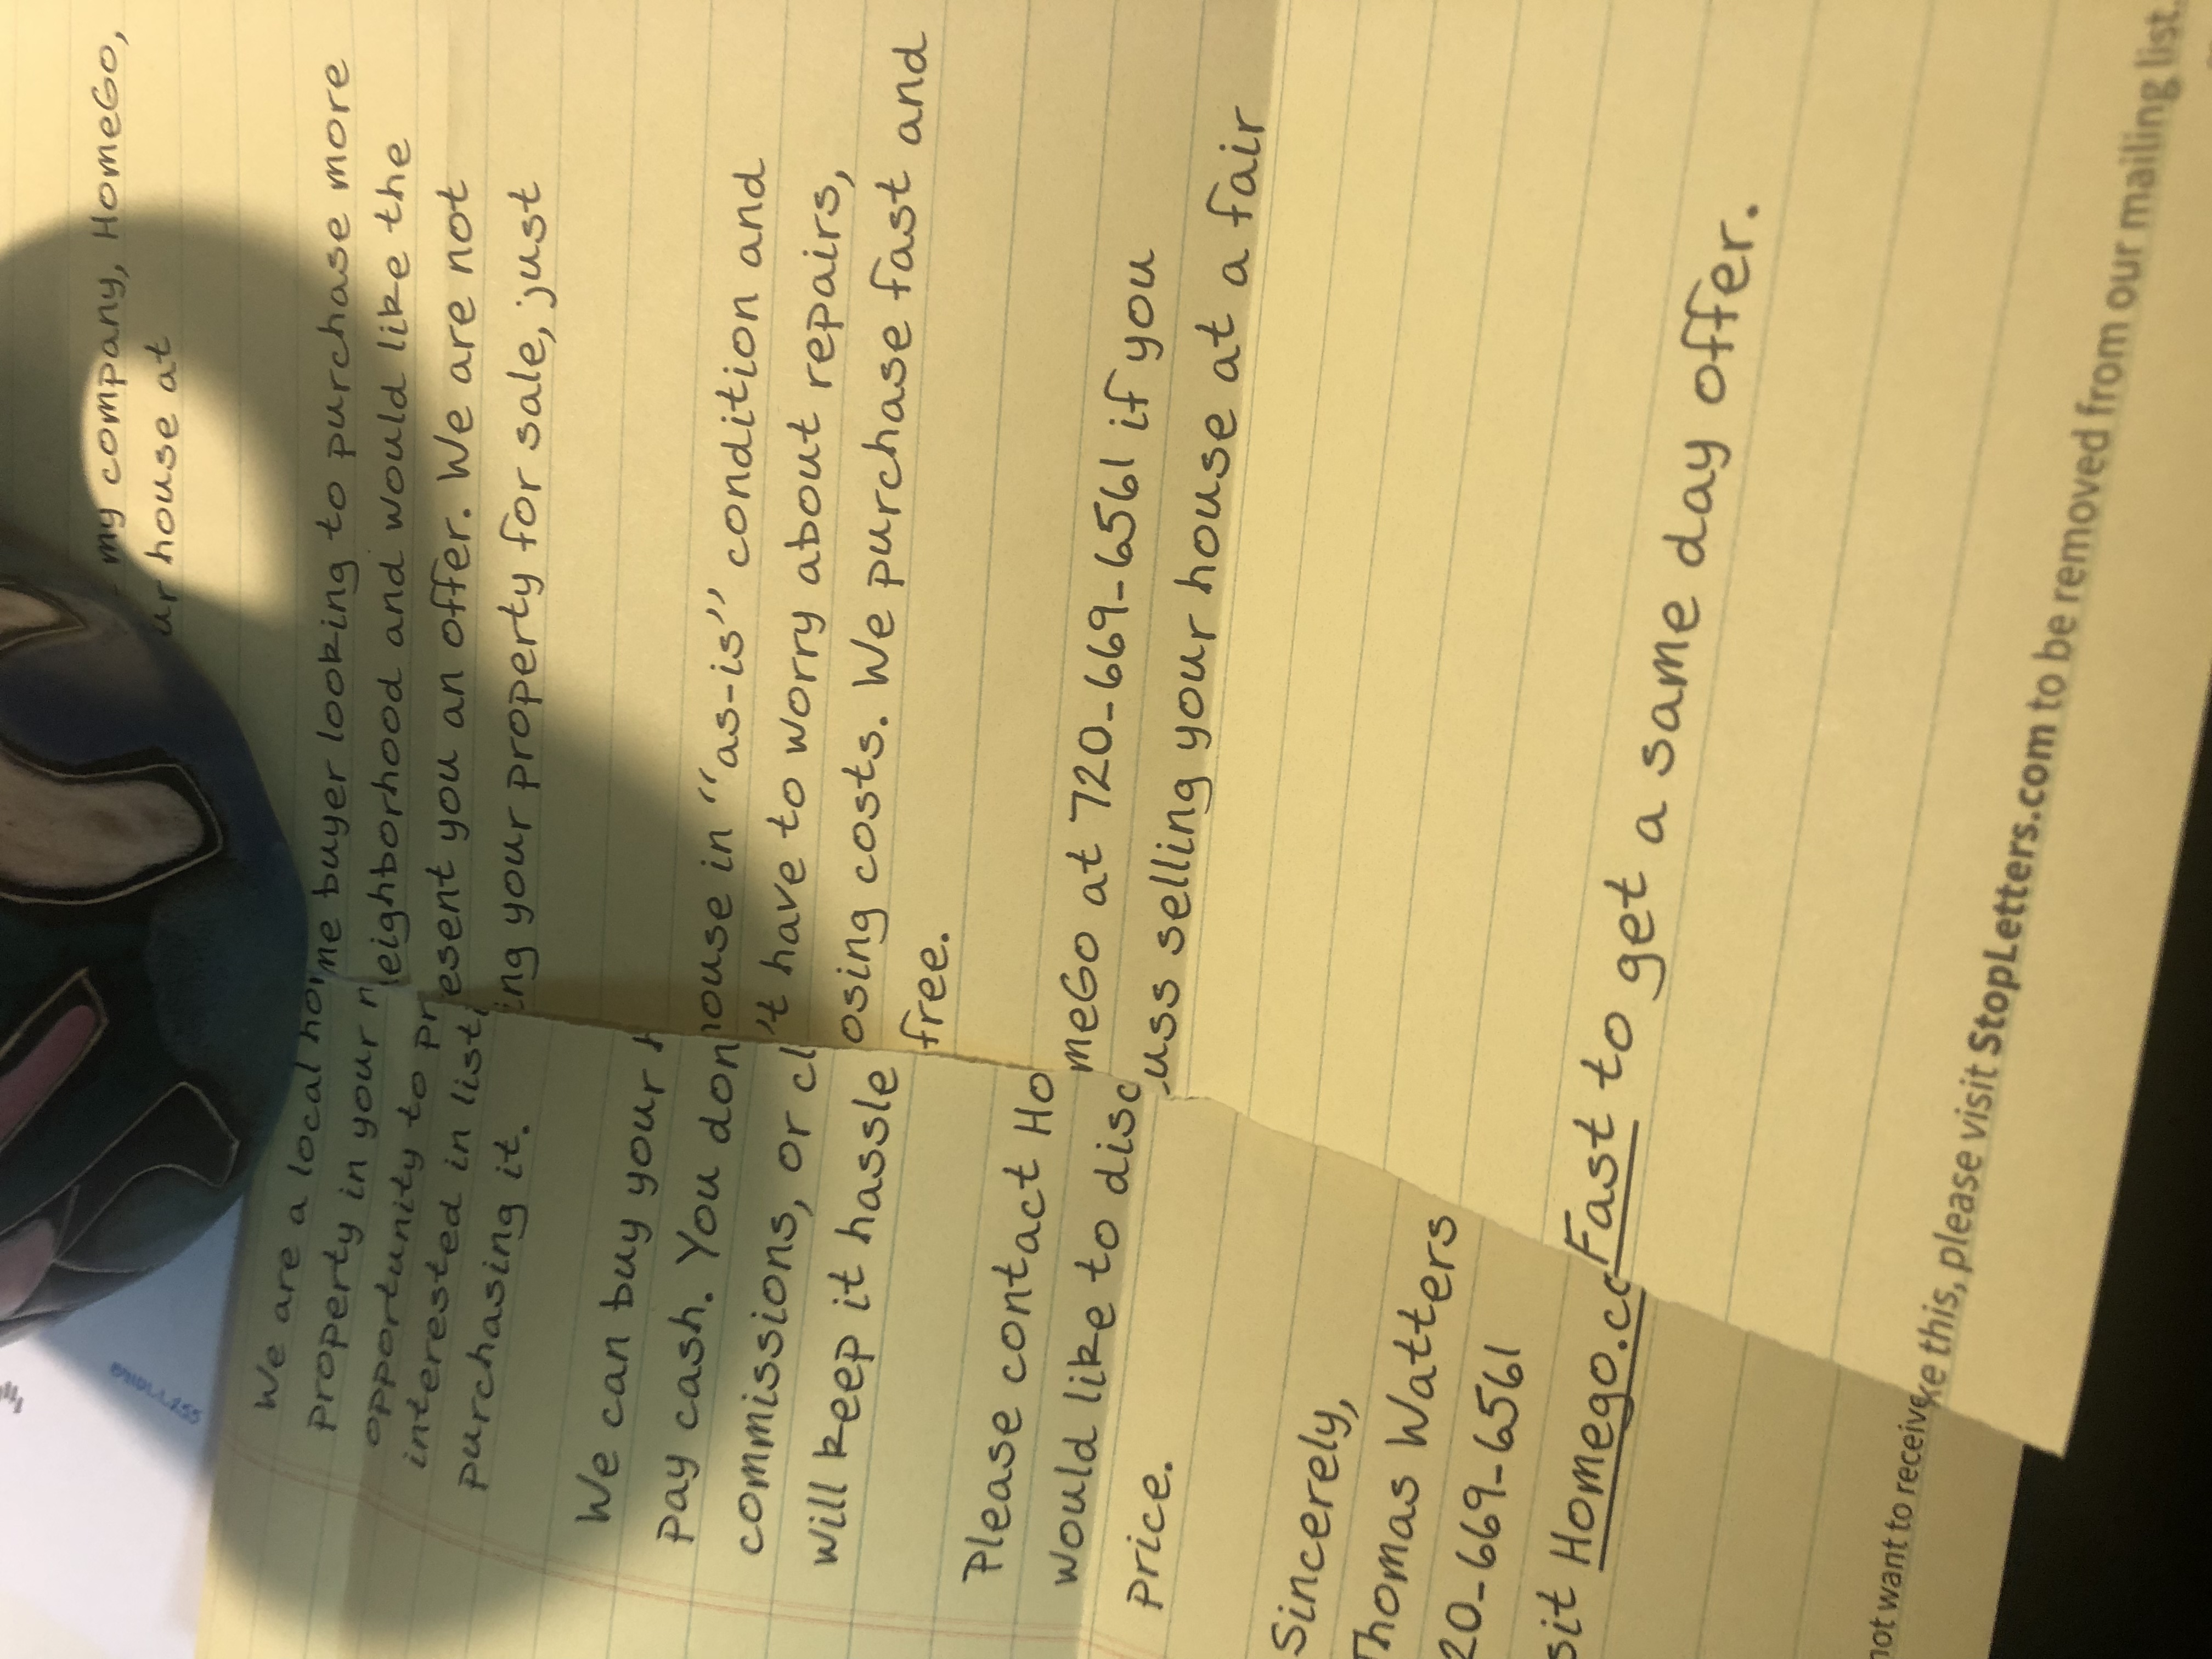 my company, HomeGo,
house at
We are a local home buyer looking to purchase more
property in your neighborhood and would like the
opportunity to present you an offer. We are not
interested in listing your property for sale, just
purchasing it.
We can buy your house in "as-is" condition and
pay cash. You don't have to worry about repairs,
commissions, or closing costs. We purchase fast and
will keep it hassle free.
Please contact HomeGo at 720-669-6561 if you
would like to discuss selling your house at a fair
price.
Sincerely,
Thomas Watters
20-669-6561
sit Homego.co Fast to get a same day offer.
not want to receive this, please visit StopLetters.com to be removed from our mailing list.